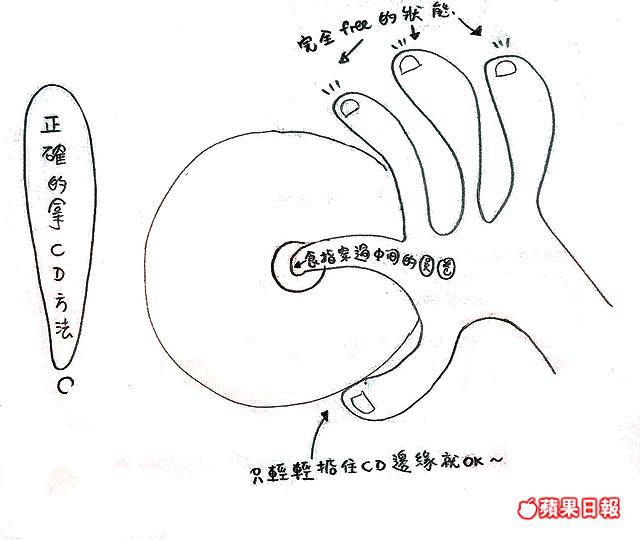 完全free的狀態
正確的拿CD方法
食指穿過中间的圓卷
只輕輕掂住CD邊緣就OK~
蘋果日報